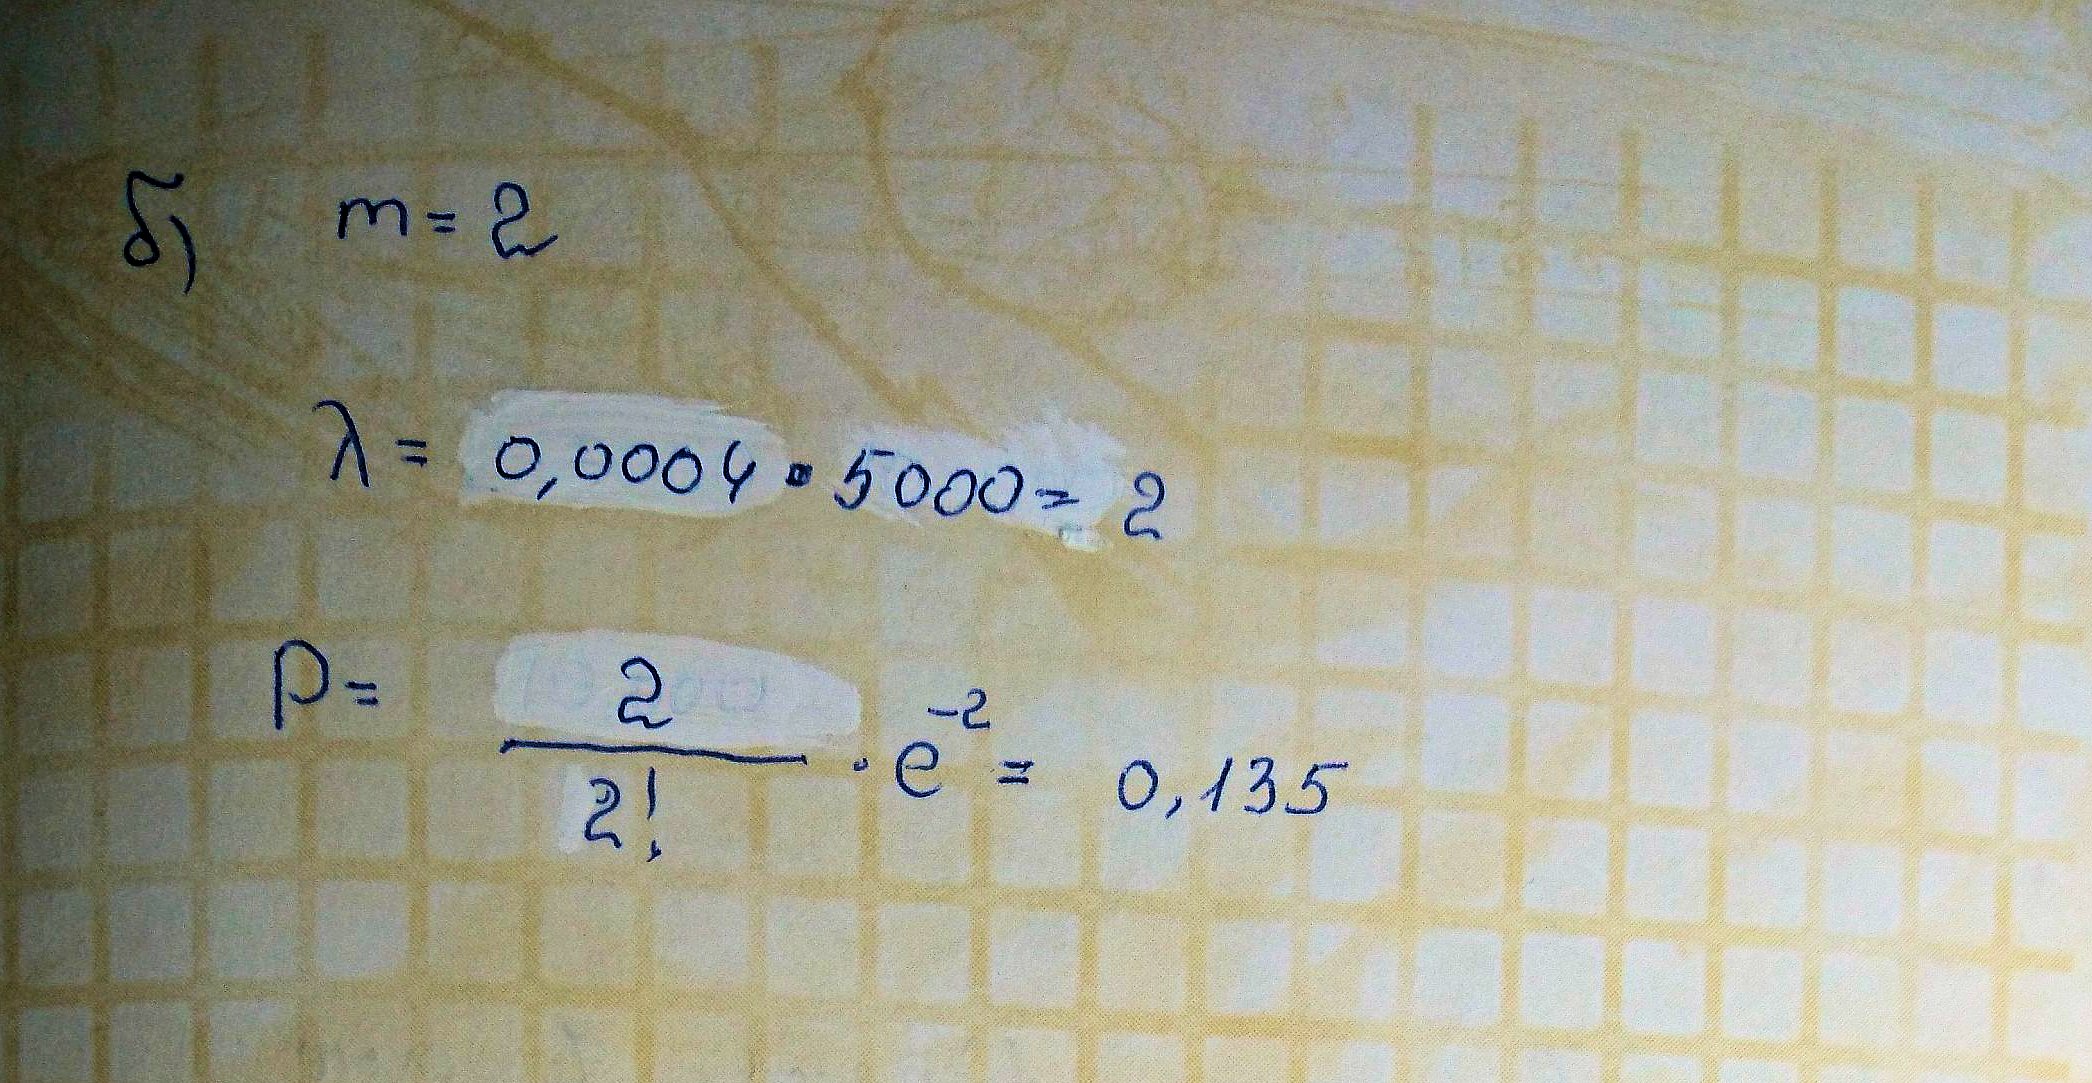 б) m = 2
λ = 0,0004 · 5000 = 2
P = 2/2! · e^-2 = 0,135